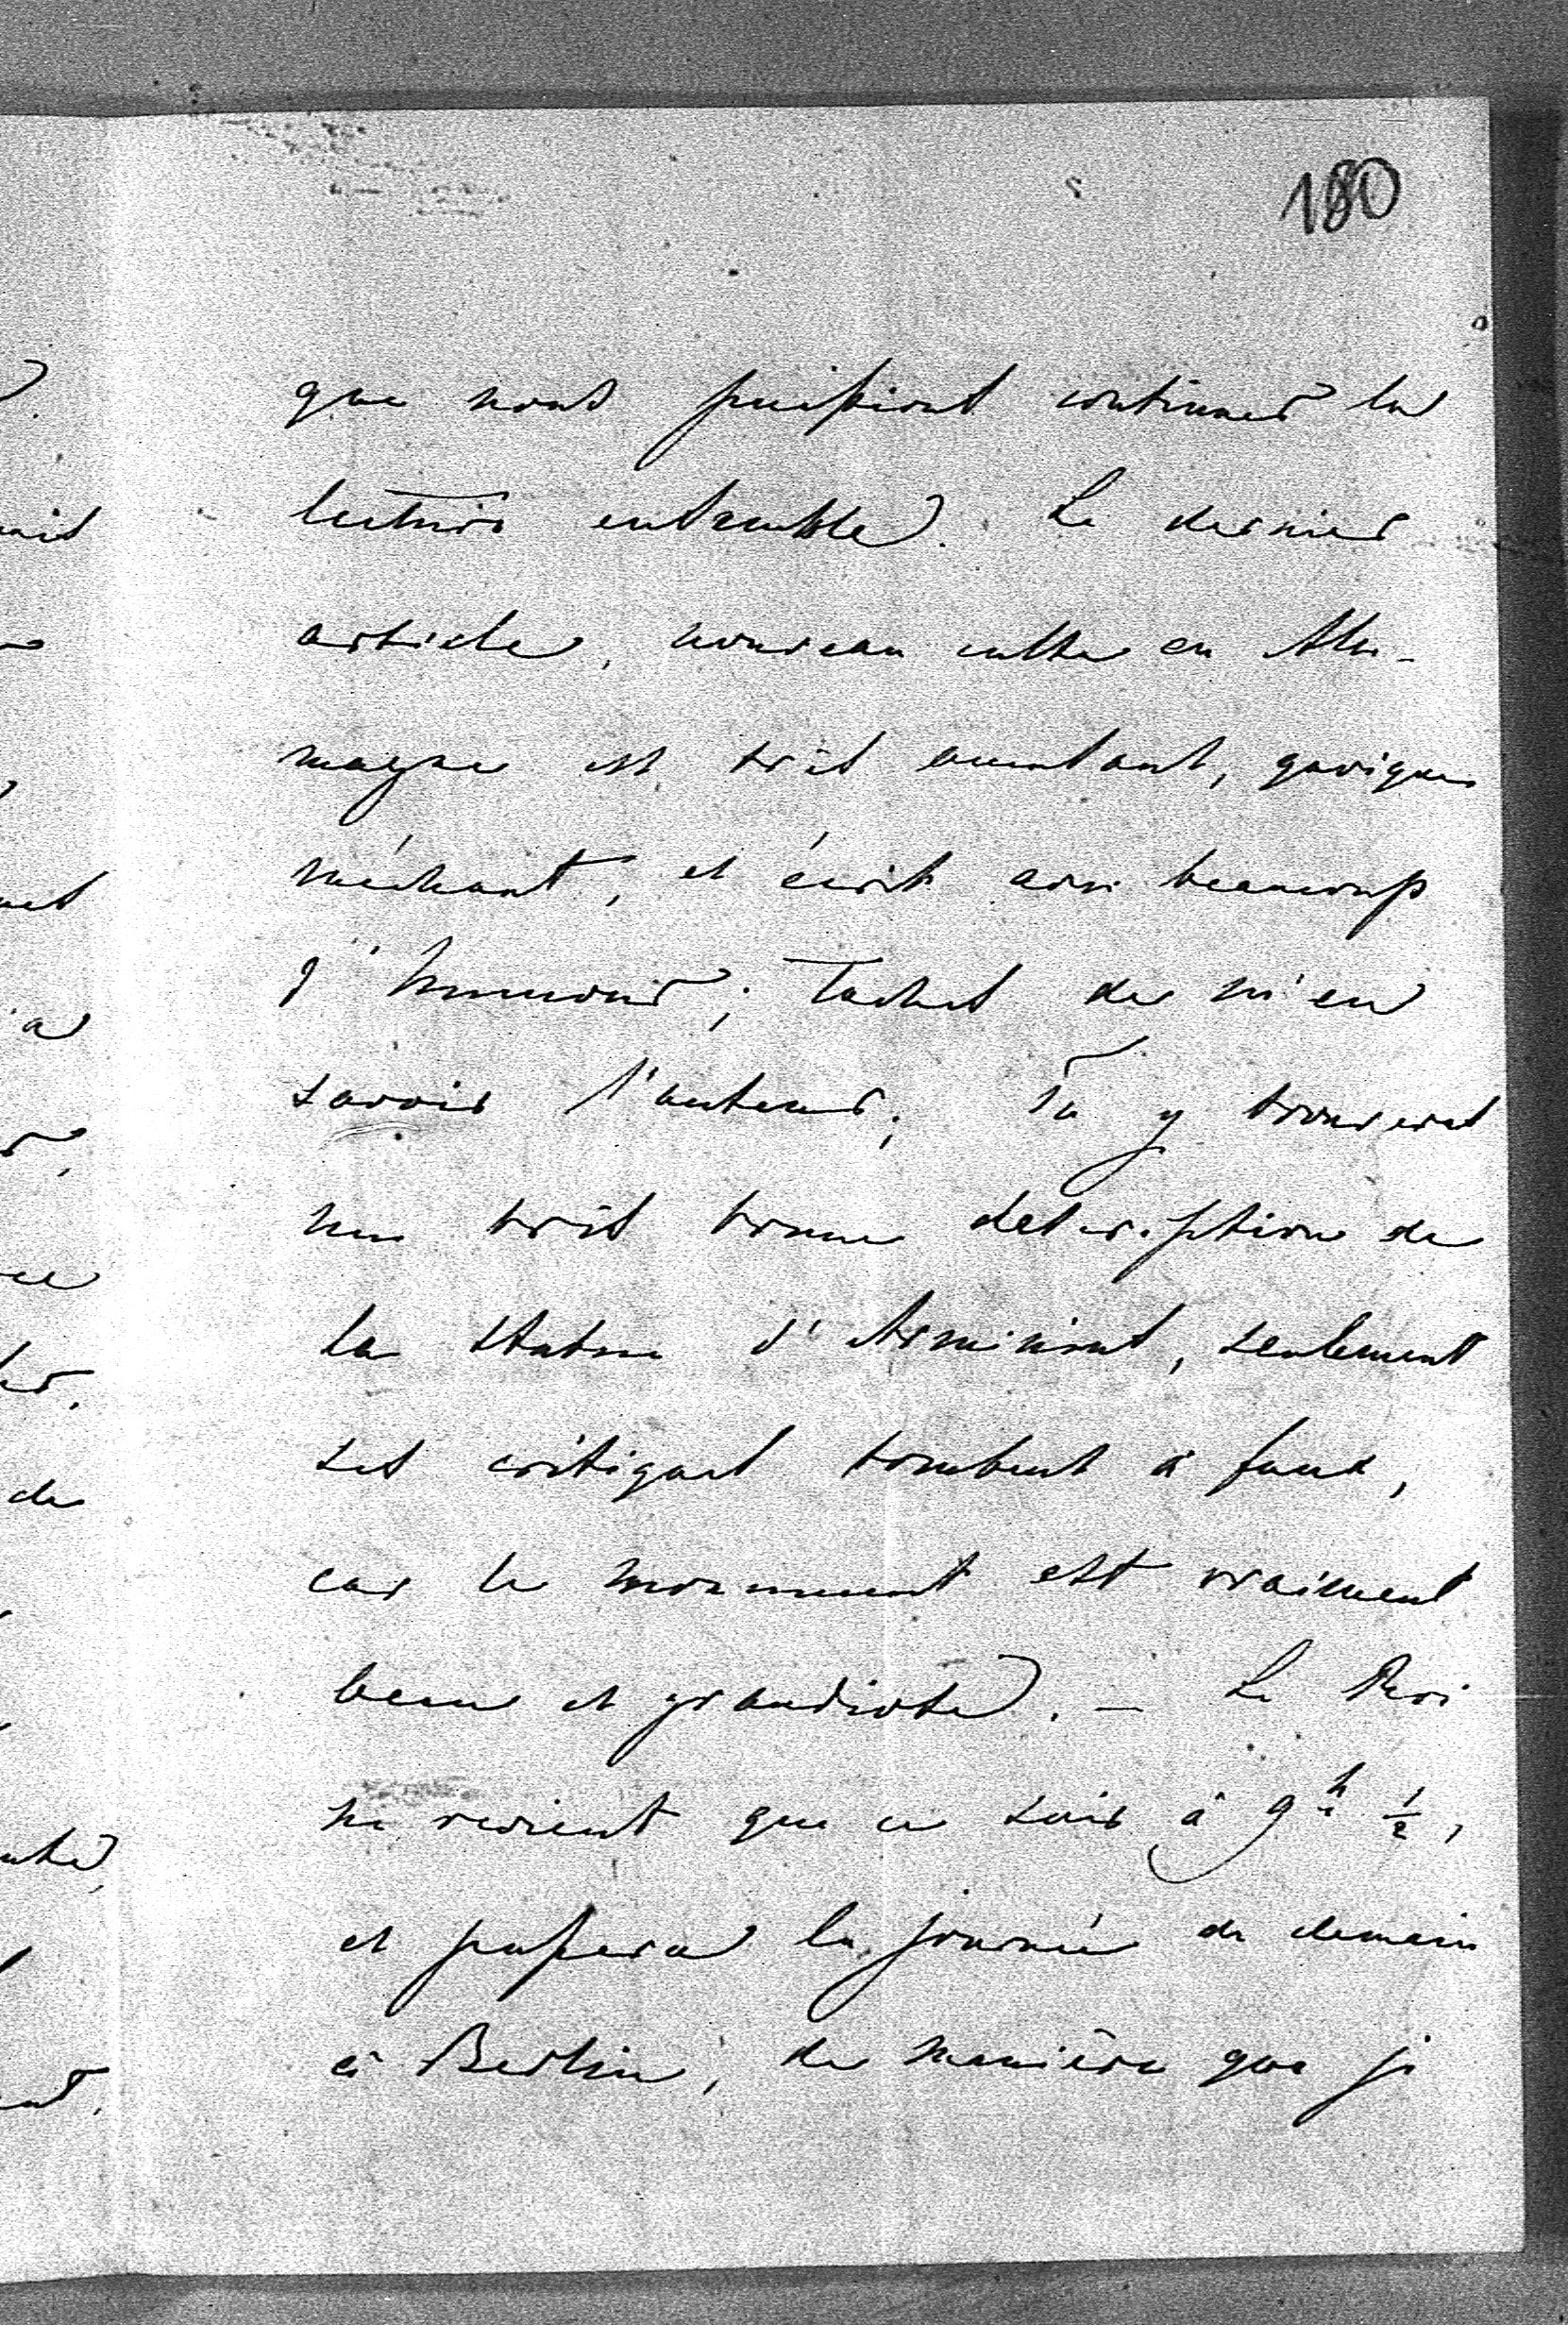 180
que nous puissions continuer la
lecture ensemble. Le dernier
article, nouveau culte en Alle-
magne est très amusant, quoique
méchant, et écrit avec beaucoup
d'humour; taches de m'en
savoir l'auteur; Tu y trouveras
une très bonne description de
la statue d'Arminius, seulement
ses critiques tombent à faux,
car le monument est vraiment
beau et grandiose. — Le Roi
ne revient que ce soir à 9 h ½,
et passera la journée de demain
à Berlin, de manière que je